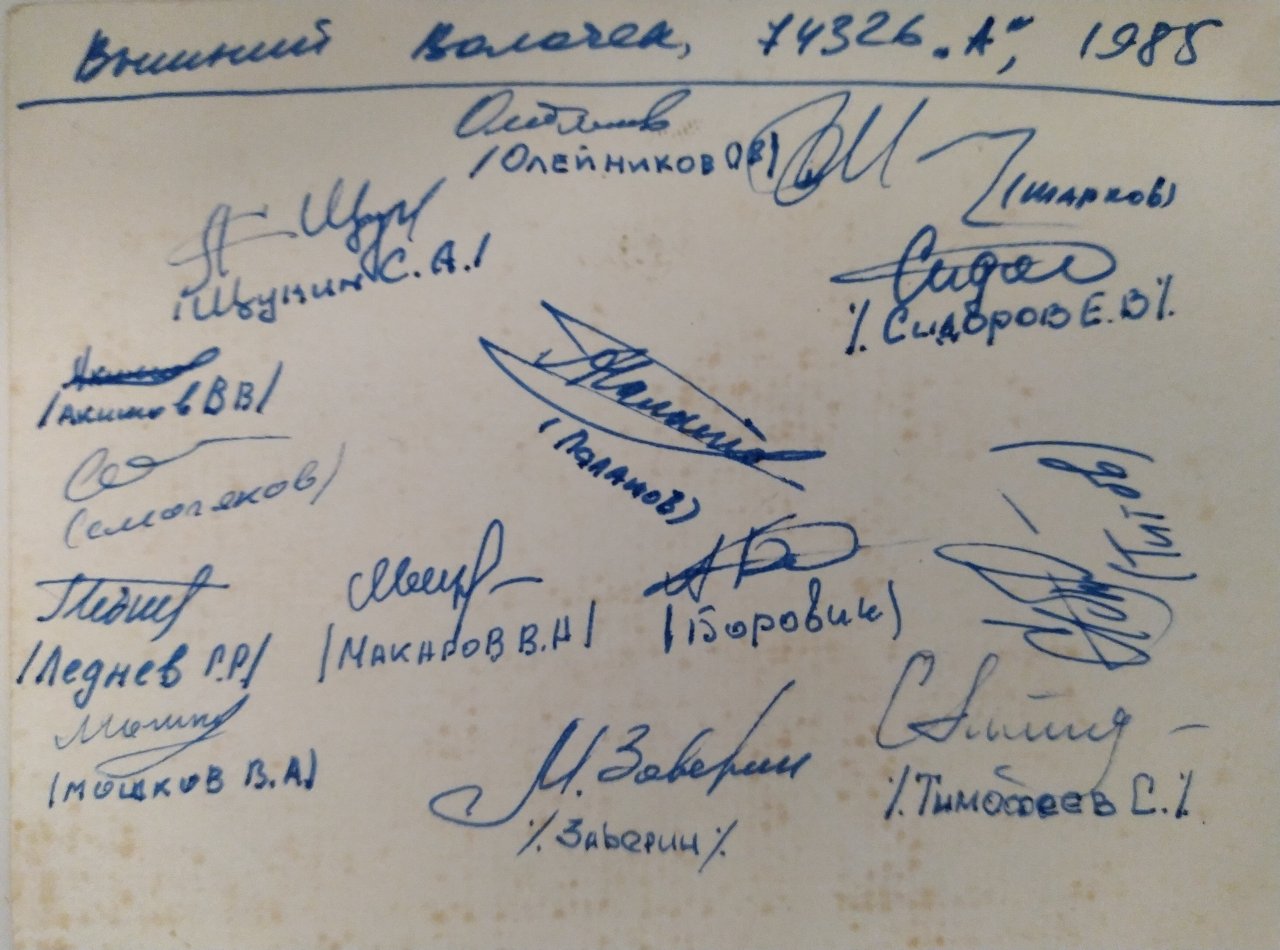 Вышний Волочек, 74326 „А“, 1985
/Олейников О В/
(Шарков)
/Щукин С. А./
⁒ Сидоров Е. В ⁒
/Акимов В В/
(Паланов)
(Смогляков)
(Титов)
/Леднев Г.Р/
/Макаров В. Н/
/Боровик/
/Мошков В. А/
М. Заверин
⁒ Заверин ⁒
⁒ Тимофеев С. ⁒